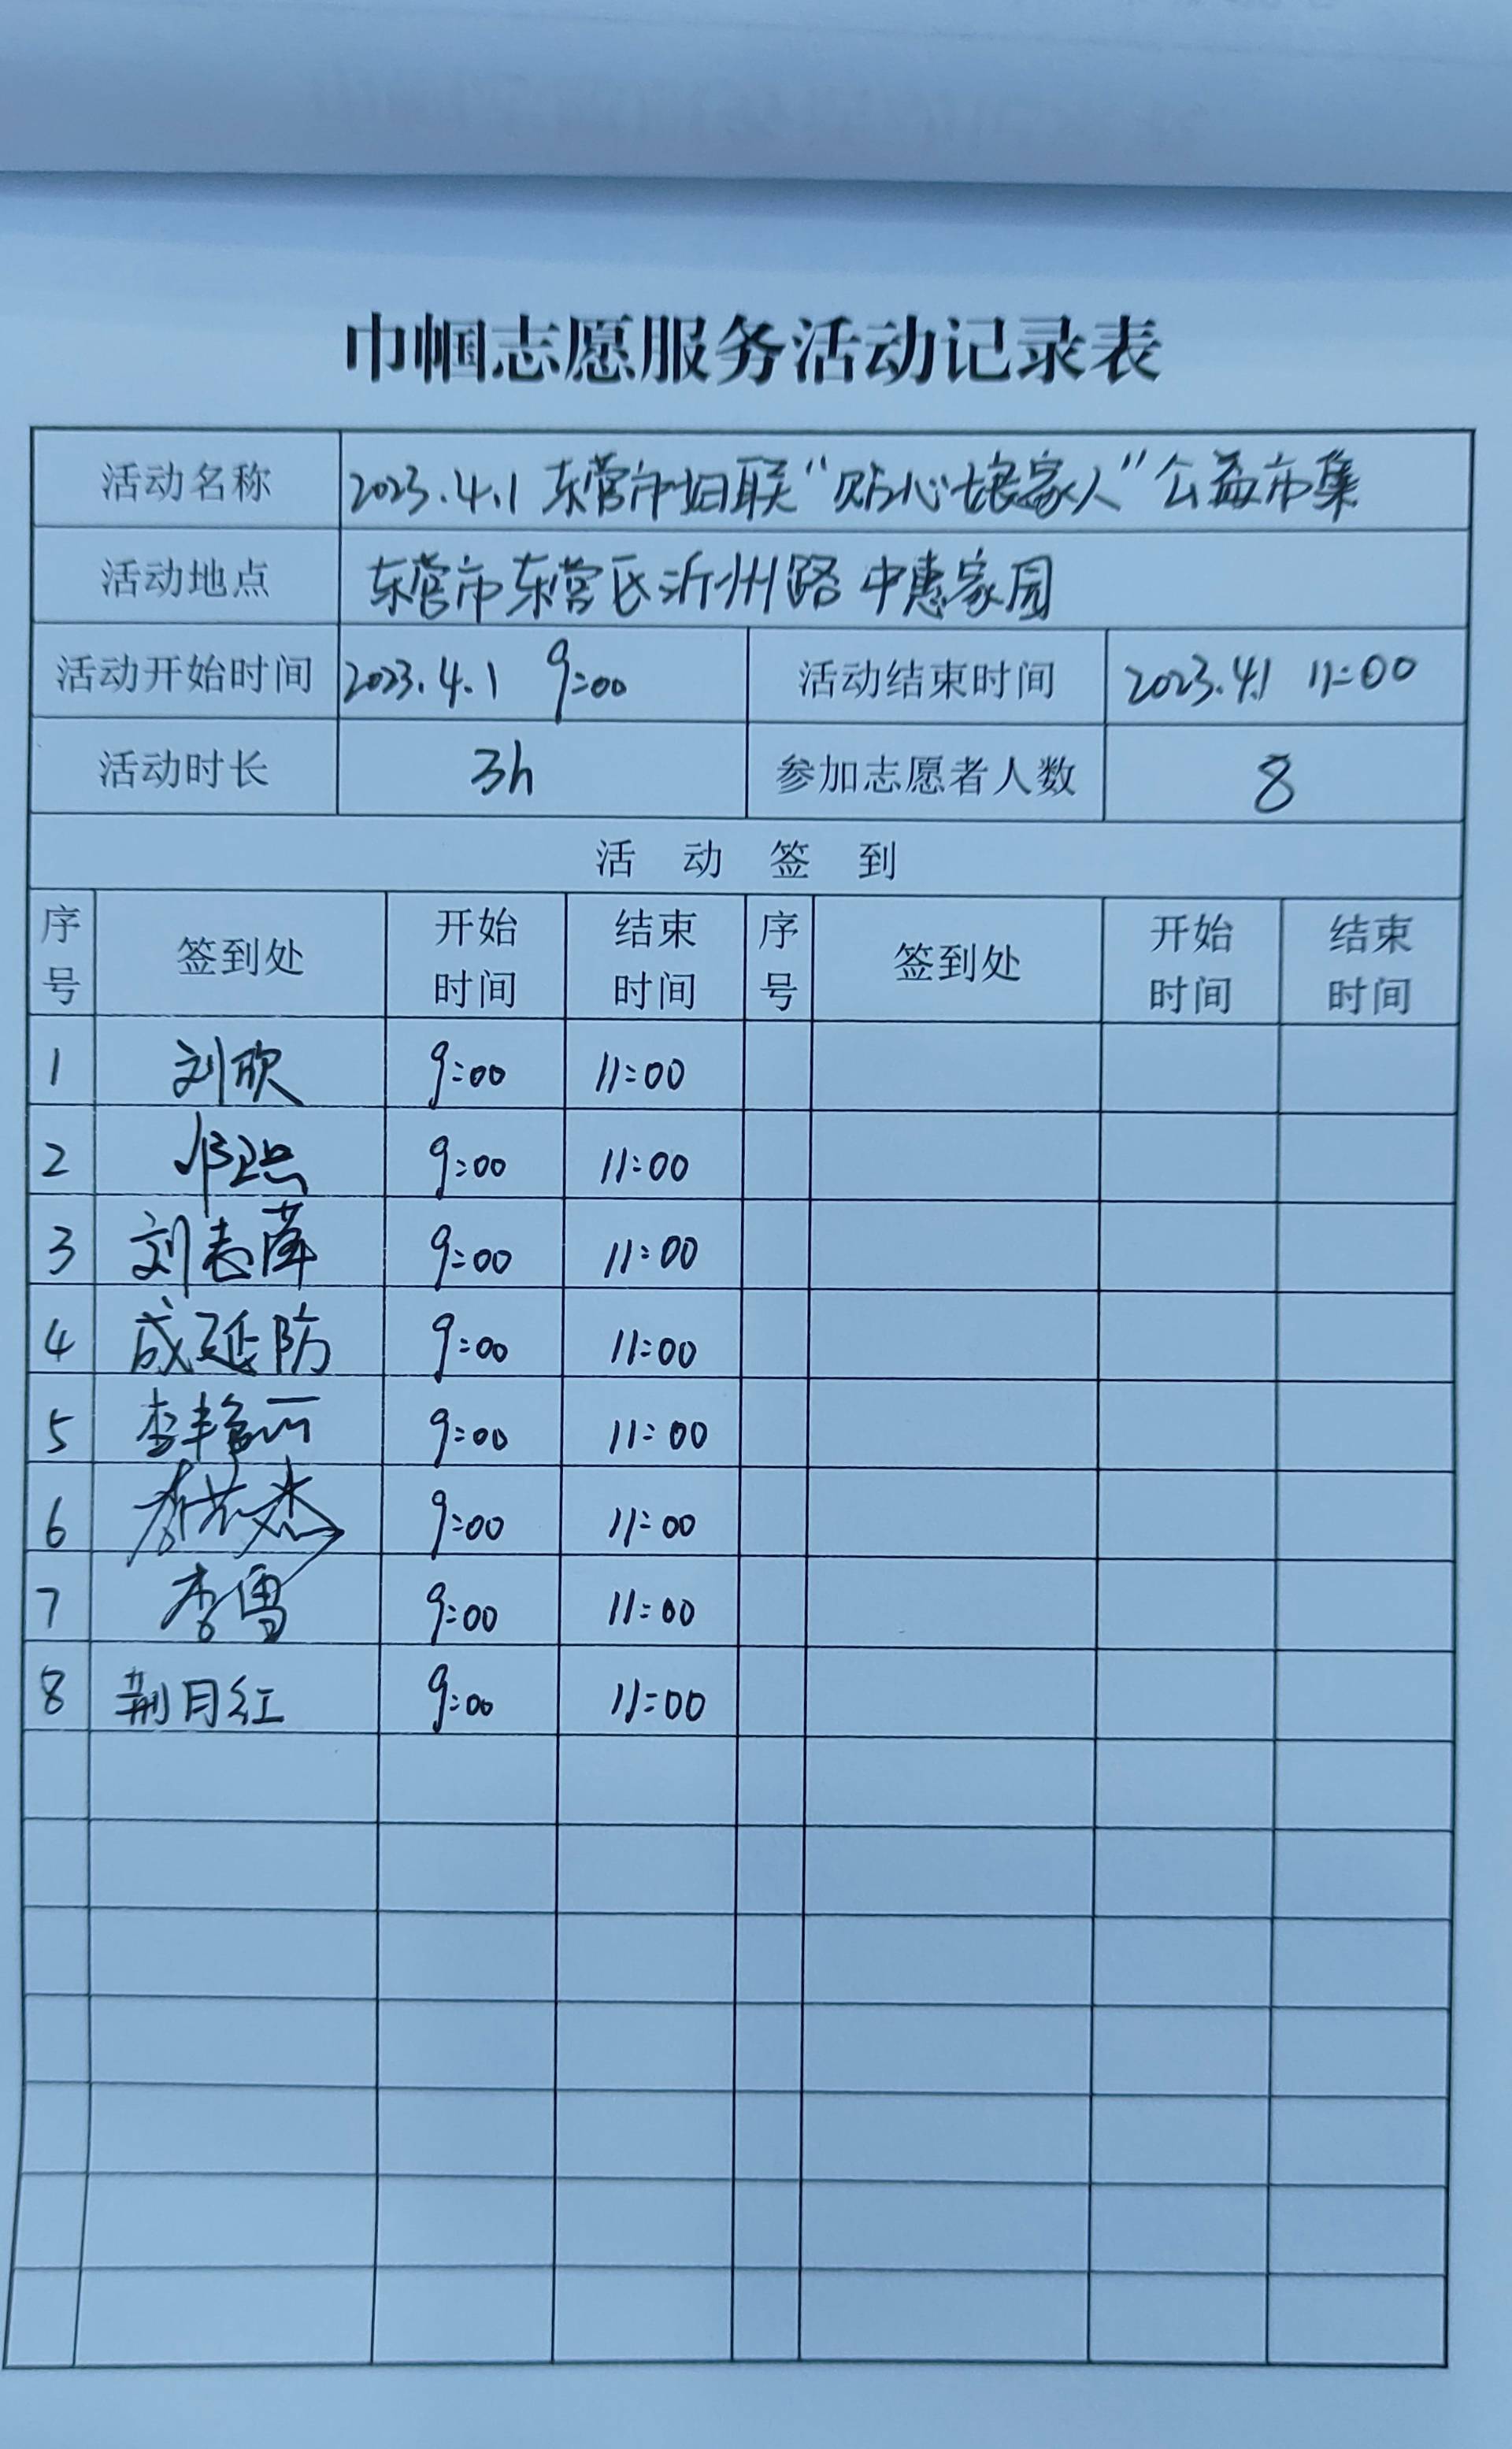 巾帼志愿服务活动记录表
活动名称 2023.4.1 东营市妇联“贴心娘家人”公益市集
活动地点 东营市东营区沂州路 中惠家园
活动开始时间 2023.4.1 9:00 活动结束时间 2023.4.1 11:00
活动时长 3h 参加志愿者人数 8
活动签到
序号 签到处 开始时间 结束时间 序号 签到处 开始时间 结束时间
1 刘欣 9:00 11:00
2 9:00 11:00
3 刘志萍 9:00 11:00
4 成延防 9:00 11:00
5 李艳丽 9:00 11:00
6 9:00 11:00
7 李雪 9:00 11:00
8 荆月红 9:00 11:00